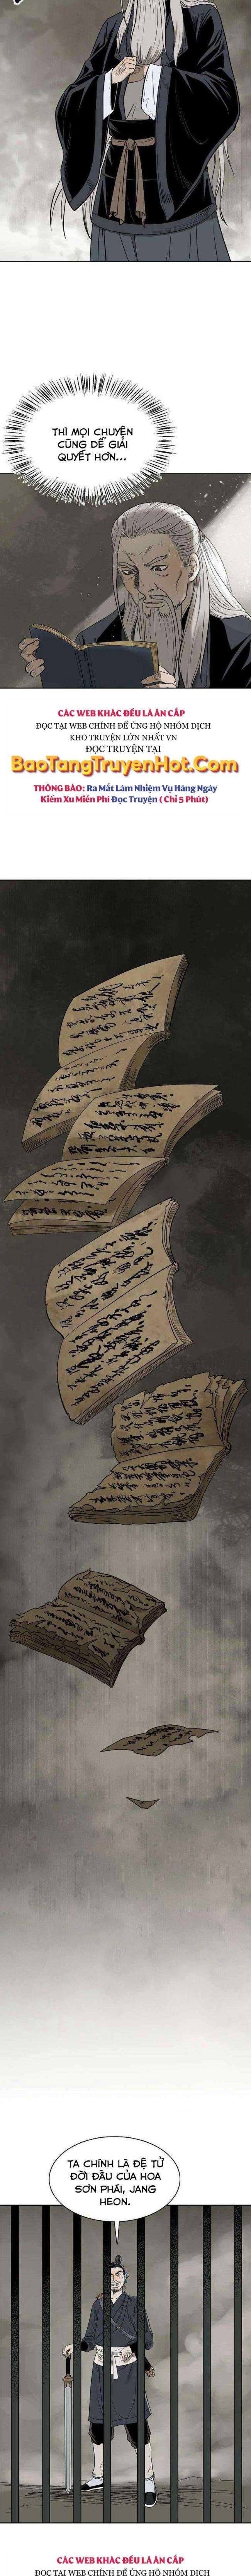 THÌ MỌI CHUYỆN
CŨNG DỄ GIẢI
QUYẾT HƠN...
CÁC WEB KHÁC ĐỀU LÀ ĂN CẮP
ĐỌC TẠI WEB CHÍNH ĐỂ ỦNG HỘ NHÓM DỊCH
KHO TRUYỆN LỚN NHẤT VN
ĐỌC TRUYỆN TẠI
BaoTangTruyenHot.Com
THÔNG BÁO: Ra Mắt Làm Nhiệm Vụ Hàng Ngày
Kiếm Xu Miễn Phí Đọc Truyện ( Chỉ 5 Phút)
TA CHÍNH LÀ ĐỆ TỬ
ĐỜI ĐẦU CỦA HOA
SƠN PHÁI, JANG
HEON.
CÁC WEB KHÁC ĐỀU LÀ ĂN CẮP
ĐỌC TẠI WEB CHÍNH ĐỂ ỦNG HỘ NHÓM DỊCH